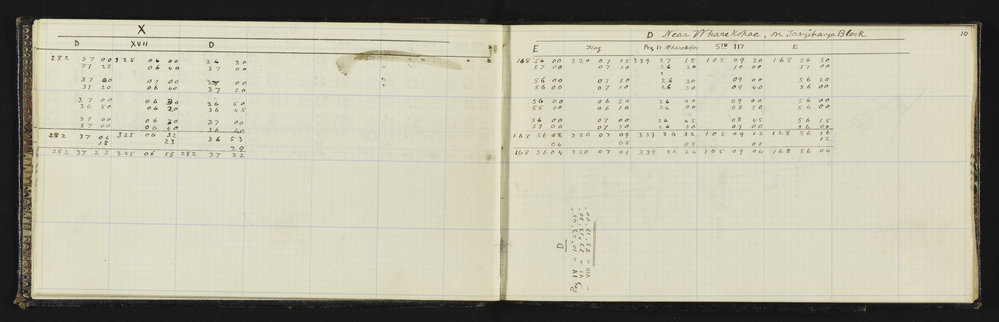 X
D XVII D
282 37 00 325 06 00 36 30
37 25 06 40 37 00
37 00 07 00 37 00
37 20 06 40 37 20
37 00 06 30 36 50
36 50 06 20 36 45
37 00 06 30 37 00
37 00 06 40 36 40
282 37 04 325 06 32 36 53
18 23 29
282 37 22 325 06 55 282 37 22
D Near Wharekopae, on Tangihanga Block 10
E Peg II Wharekopae Stn III E
168 56 00 220 07 15 339 27 15 105 09 20 168 56 30
57 00 07 30 26 30 10 00 57 00
56 00 07 30 26 30 09 00 56 20
56 00 07 10 26 50 09 40 56 00
56 00 06 50 26 00 09 00 56 00
55 00 06 10 26 00 08 50 56 00
57 00 07 00 26 45 08 45 56 15
57 00 07 30 26 30 09 00 56 00
168 56 08 220 07 09 339 26 32 105 09 12 168 56 16
04 08 08 08 12
168 56 04 220 07 01 339 26 24 105 09 04 168 56 04
D
Peg IV = 10° 23' 45"
" VI = 27° 13' 30"
" VIII = 85° 17' 00"